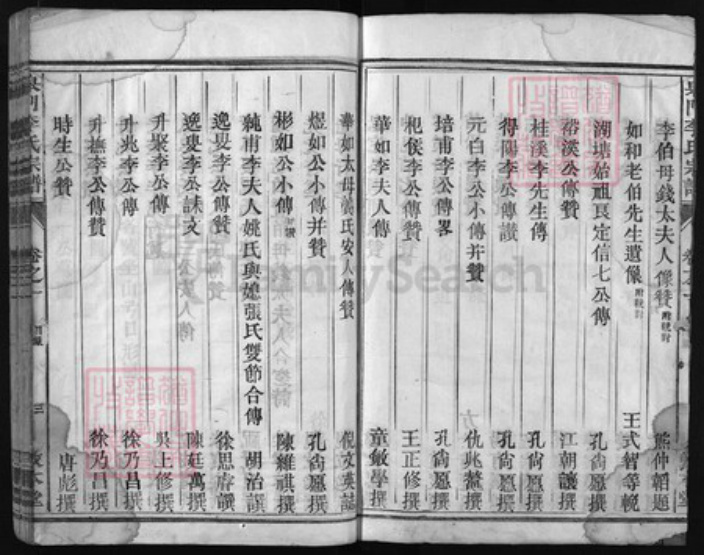 李伯母錢太夫人像贊 附祝對 熊仲韜題
如和老伯先生遺像 附祝對 王式智等輓
湖塘始祖良定信七公傳 孔尙愿撰
裕溪公傳贊 江朝議撰
桂溪李先生傳 孔尙愿撰
得陽李公傳讃 孔尙愿撰
元白李公小傳并贊 仇兆鰲撰
培甫李公傳畧 孔尙愿撰
杞侯李公傳贊 王正修撰
華如李夫人傳 童敏學撰
華如太母 氏安人傳贊 倪文英誌
煜如公小傳并贊 孔尙愿撰
彬如公小傳 附讃 陳維祺撰
純甫李夫人姚氏與媳張氏雙節合傳 胡治譔
逸叟李公傳贊 徐思 譔
逸叟李公誄文 陳廷萬撰
升聚李公傳 吳上修撰
升兆李公傳 徐乃昌撰
升撫李公傳贊 徐乃昌撰
時生公贊 唐彪撰
吳門李氏宗譜 卷之一 目錄 三 敦本堂